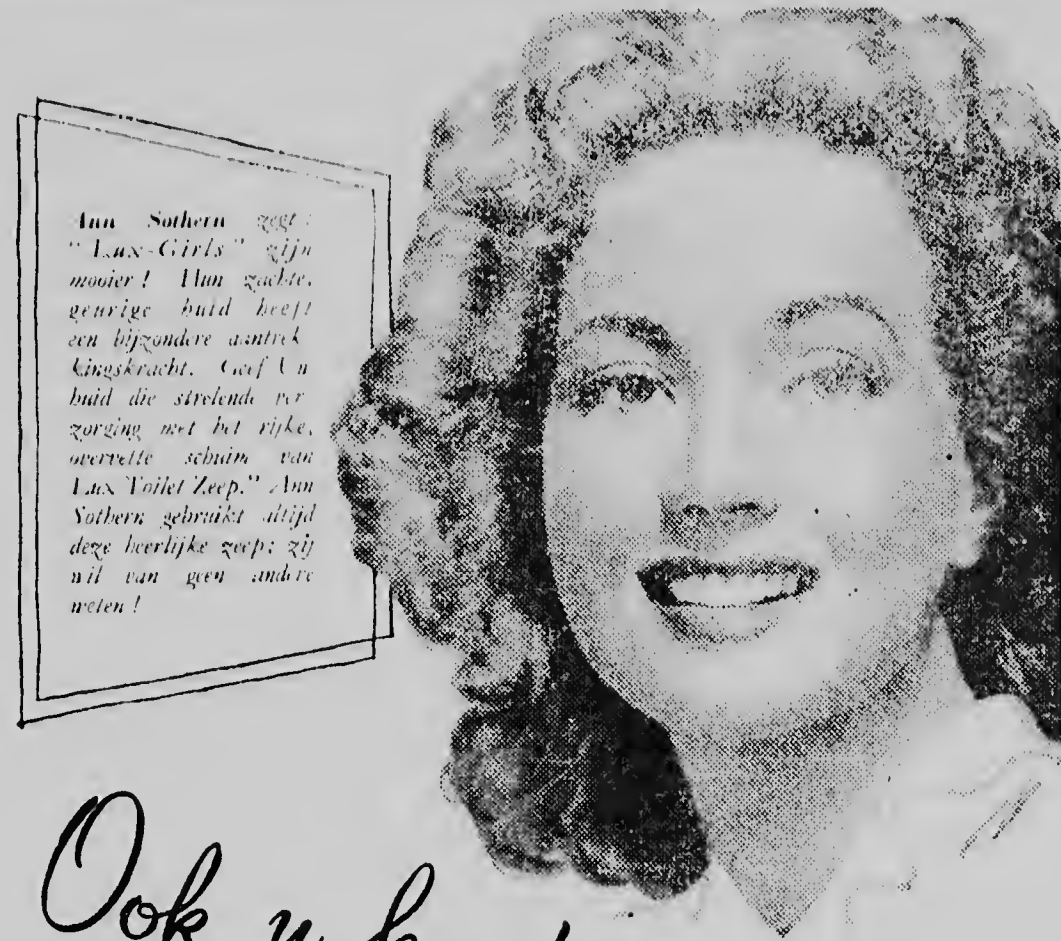 Ann Sothern zegt:
"Lux-Girls" zijn
mooier! Hun zachte,
geurige huid heeft
een bijzondere aantrek-
kingskracht. Geef Uw
huid die strelende ver-
zorging met het rijke,
overvette schuim van
Lux Toilet Zeep." Ann
Sothern gebruikt altijd
deze heerlijke zeep: zij
wil van geen andere
weten!
Ook u